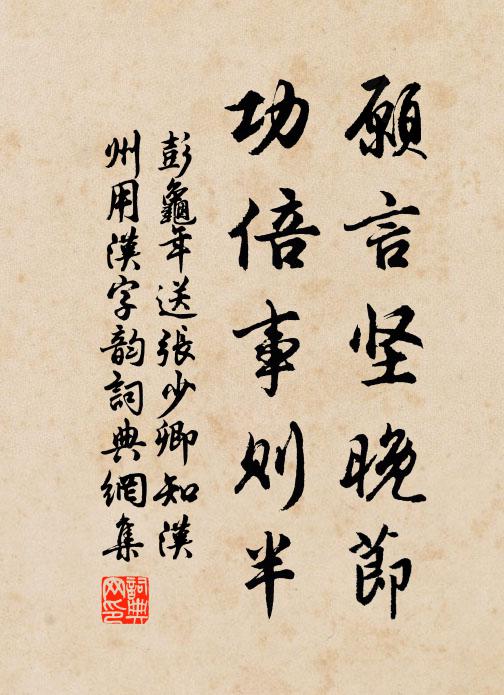 願言坚晚節
功倍事则半
彭龜年送張少卿知漢
州用漢字韵詞典網集
詞典
网印